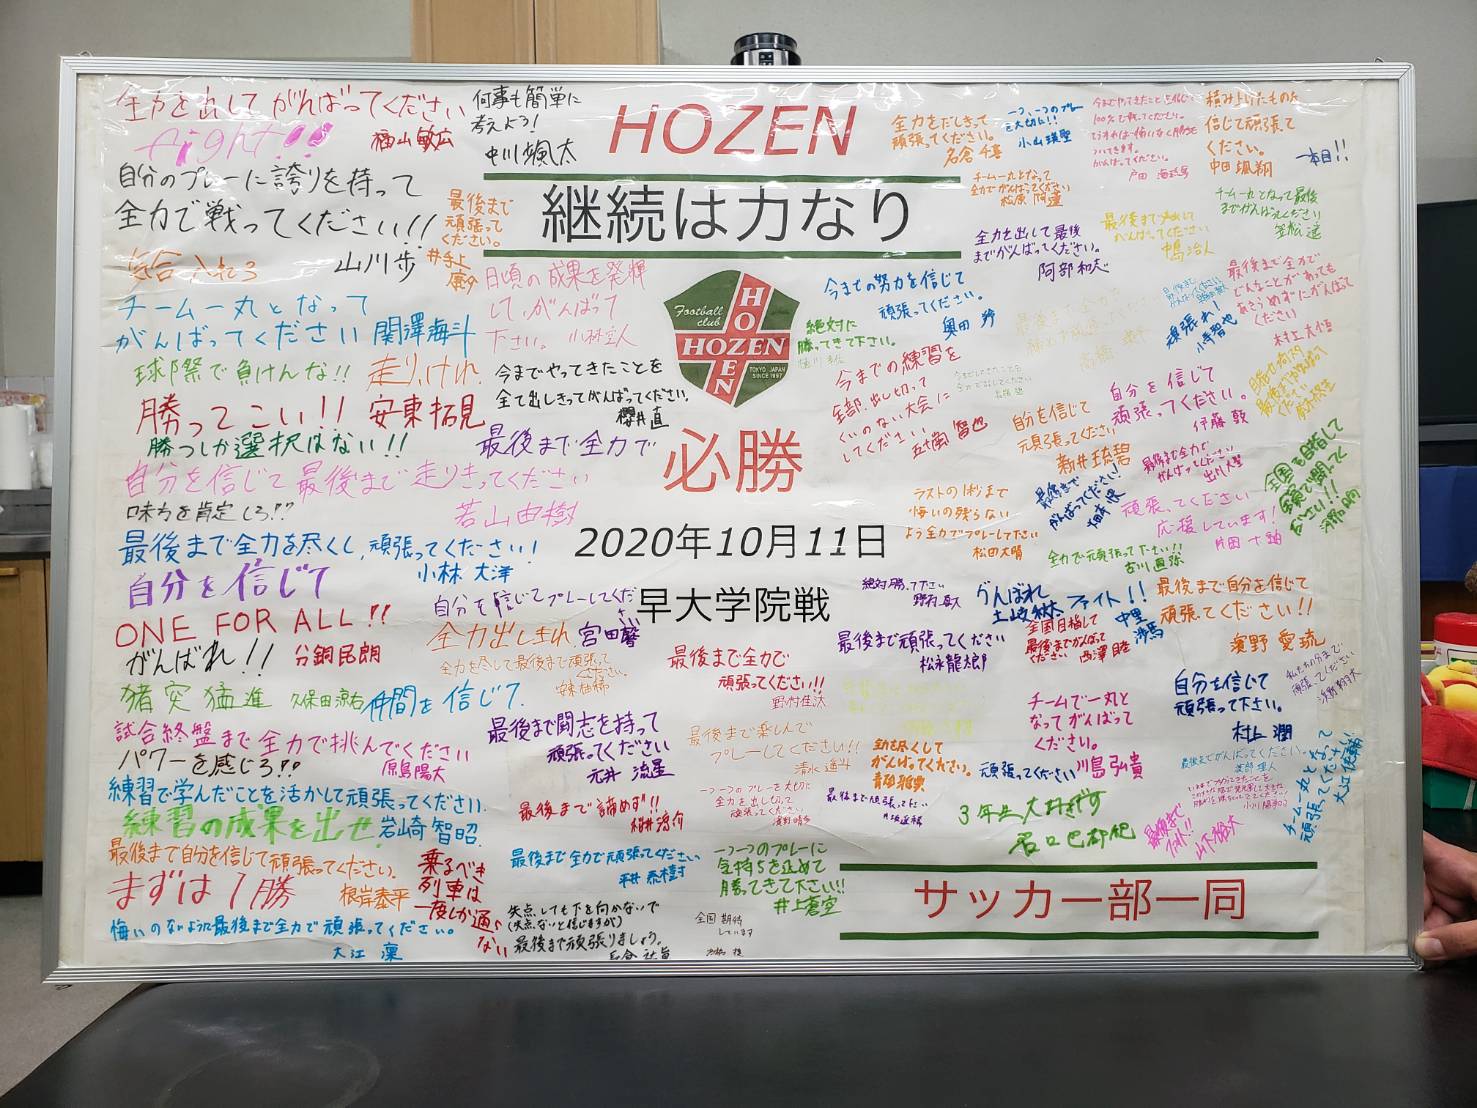 全力を出してがんばってください
fight!!
福山敏広
自分のプレーに誇りを持って
全力で戦ってください!!
気合入れろ
山川歩
チーム一丸となって
がんばってください
関澤海斗
球際で負けんな!!
走りいけれ
勝ってこい!!
安東拓見
勝つしか選択はない!!
自分を信じて最後まで走りきってください
若山由樹
味方を肯定しろ!?
最後まで全力を尽くし、頑張ってください!
小林大洋
自分を信じて
ONE FOR ALL!!
がんばれ!!
分銅民朗
猪突猛進
久保田涼右
仲間を信じて
試合終盤まで全力で挑んでください
パワーを感じろ!?
原島陽大
練習で学んだことを活かして頑張ってください.
練習の成果を出せ!
岩崎智昭
最後まで自分を信じて頑張ってください.
まずは1勝
根岸泰平
悔いのないように最後まで全力で頑張ってください。
大江凜
何事も簡単に
考えよう!
中川颯太
最後まで
頑張って
ください。
井手上
日頃の成果を発揮
して、がんばって
下さい。
今までやってきたことを
全て出しきってがんばってください。
櫻井直
最後まで全力で
自分を信じてプレーしてください
全力出しきれ
宮田馨
全力を尽して最後まで頑張って
ください。
最後まで闘志を持って
頑張ってください
元井流星
最後まで諦めず!!
最後まで全力で頑張ってください
平井泰樹
乗るべき
列車は
一度しか通ら
ない
失点しても下を向かないで
(失点ないと信じますが)
最後まで頑張りましょう。
HOZEN
継続は力なり
Football
club
HOZEN
HOZEN
TOKYO JAPAN
SINCE 1997
必勝
2020年10月11日
早大学院戦
絶対に
勝ってきて下さい。
最後まで全力で
頑張ってください!!
野村佳汰
最後まで楽しんで
プレーしてください!!
清水遥斗
一つ一つのプレーを大切に
全力を出し切って
頑張ってください
一つ一つのプレーに
気持ちを止めて
勝ってきて下さい!!
井上蒼空
全国期待
しています
全力をだしきって
頑張ってください。
名倉千喜
一つ、一つのプレー
を大切に!!
小山瑛聖
今までやってきたことを信じて
100%で戦ってください。
がんばってください。
積み上げたものを
信じて頑張って
ください。
中田颯翔
一本目!!
チーム一丸となって
全力でがんばってください
松原阿蓮
全力を出して最後
までがんばってください。
阿部和志
最後まで
がんばってください
鴨治人
チーム一丸となって最後
までがんばってください
笠松逹
今までの努力を信じて
頑張ってください。
奥田
頑張れ!
小寺智也
最後まで全力で
どんなことがあっても
あきらめずにがんばって
ください
村上大悟
今までの練習を
全部、出し切って
くいのない大会に
してください!
五十嵐智也
自分を信じて
頑張ってください。
伊藤敦
自分を信じて
頑張ってください
新井琉碧
最後まで全力で
がんばってください
出川大聖
全国を目指して
ラストの1秒まで
悔いの残らない
よう全力でプレーして下さい
松田大晴
最後まで
がんばってください!
頑張ってください
応援しています!
全力で頑張って下さい!!
古川直弥
絶対勝って下さい
がんばれ
ファイト!!
中里
最後まで自分を信じて
頑張ってください!!
濱野愛琉
最後まで頑張ってください
松永龍太郎
全国目指して
最後までがんばって
ください
チームで一丸と
なってがんばって
ください。
自分を信じて
頑張って下さい。
村上潤
勁を尽くして
がんばってください。
頑張ってください
川島弘貴
最後までがんばってください。
3年生大好きです
最後まで
ファイト!!
山下裕大
チーム一丸となって
頑張ってください!
サッカー部一同